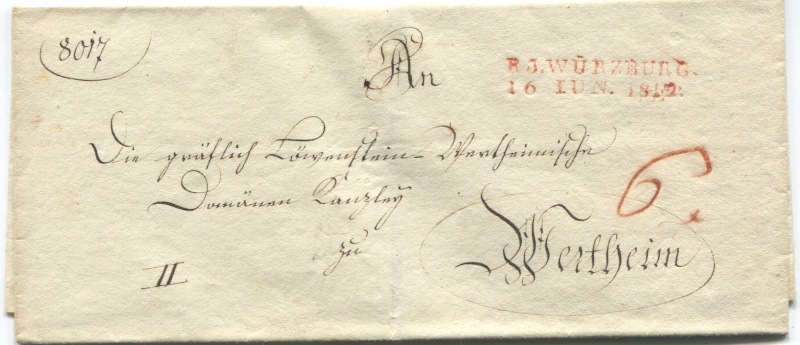 8017
An
R 3. WÜRZBURG.
16 IUN. 1812.
Die gräflich Löwenstein-Wertheimische
Domänen Kanzley
6.
zu
Wertheim
II